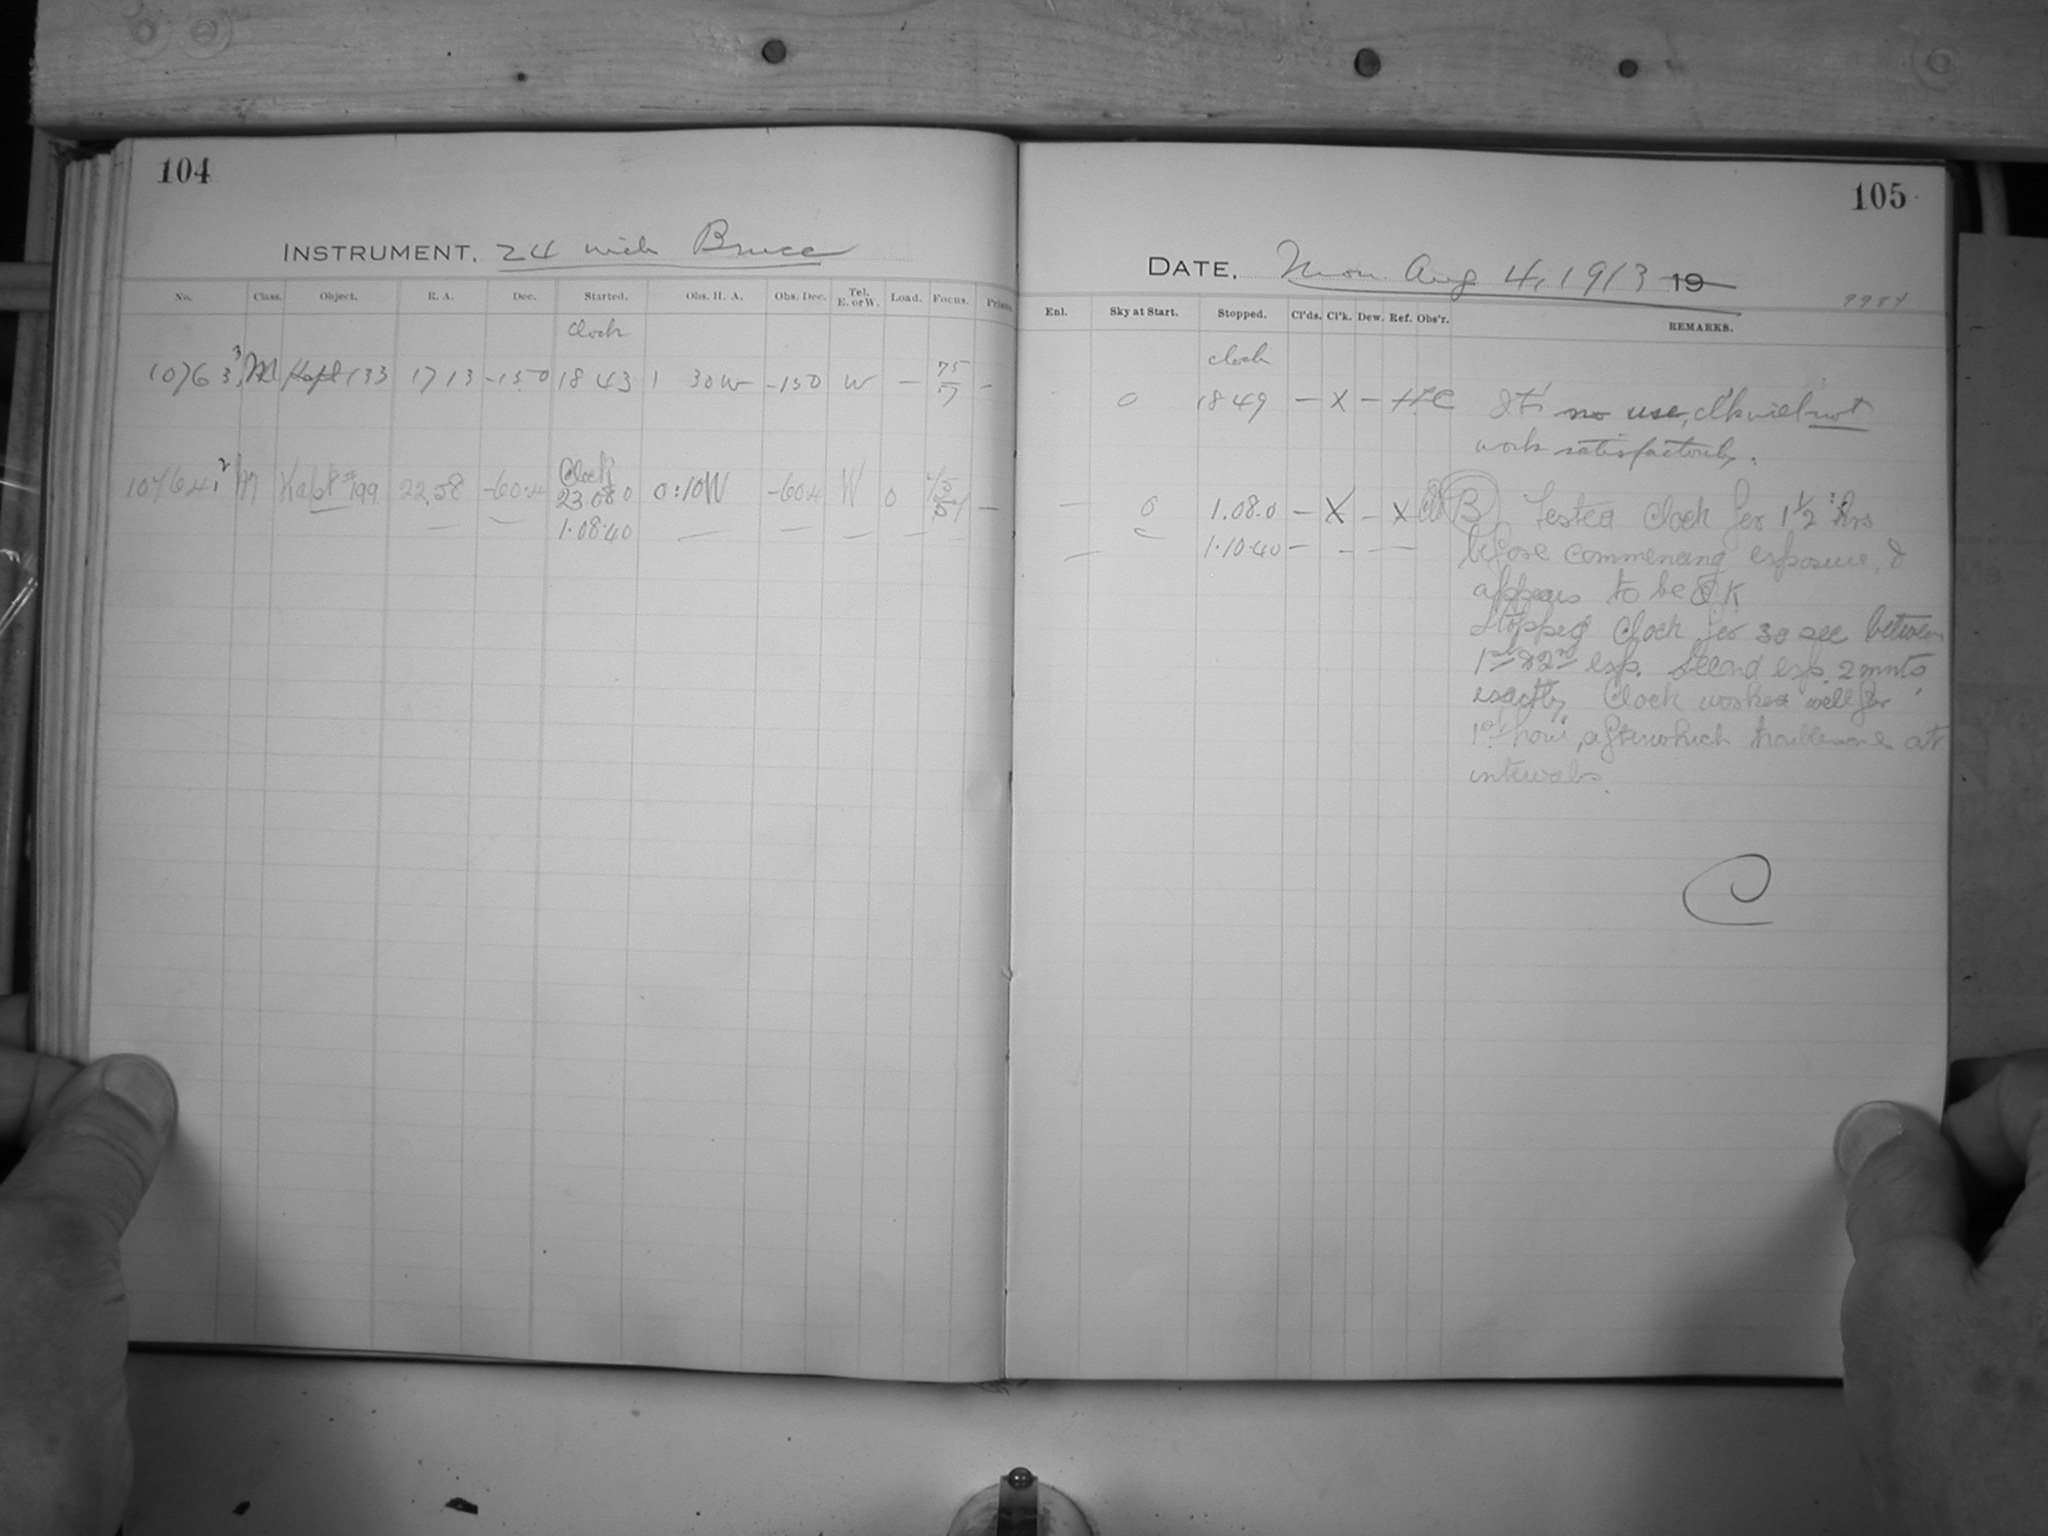 104
INSTRUMENT. 24 inch Bruce
No. Class. Object. R. A. Dec. Started. Obs. H. A. Obs. Dec. Tel. E. or W. Load. Focus.
Clock
10763 3 M Kapt 133 17 13 -15.0 18 43 1 30W -150 W — 75/57 -
Clock
10764 2 M Kapt # 199 22.58 -60.4 23.08 0 0:10W -60.4 W 0 —
1.08.40
105
DATE. Mon Aug 4, 1913 19
9984
Enl. Sky at Start. Stopped. Cl'ds. Cl'k. Dew. Ref. Obs'r. REMARKS.
Clock
0 18 49 — X — It's no use, cl'k will not
work satisfactorily.
— 0 1.08.0 — X — X B Tested Clock for 1 1/2 hrs
1.10.40 — before commencing exposure, &
appears to be O K
Stopped Clock for 30 sec between
1st & 2nd exp. Second exp. 2 mnts
exactly. Clock worked well for
1st hour, after which troublesome at
intervals.
C